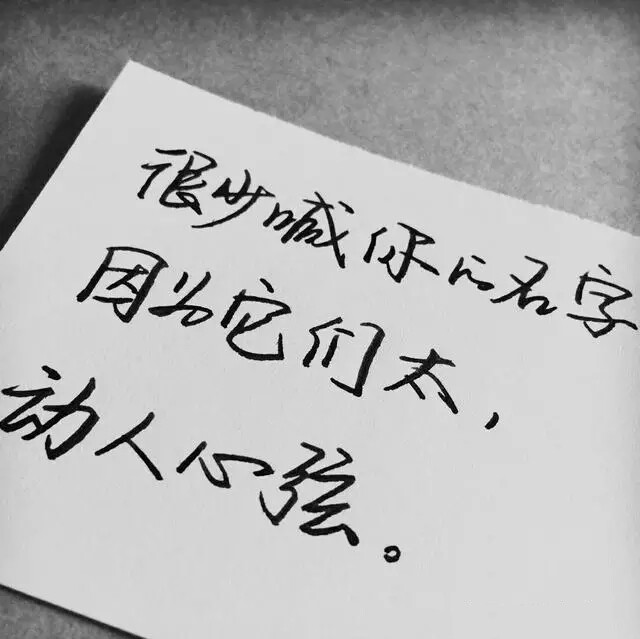 很少喊你的名字
因为它们太，
动人心弦。